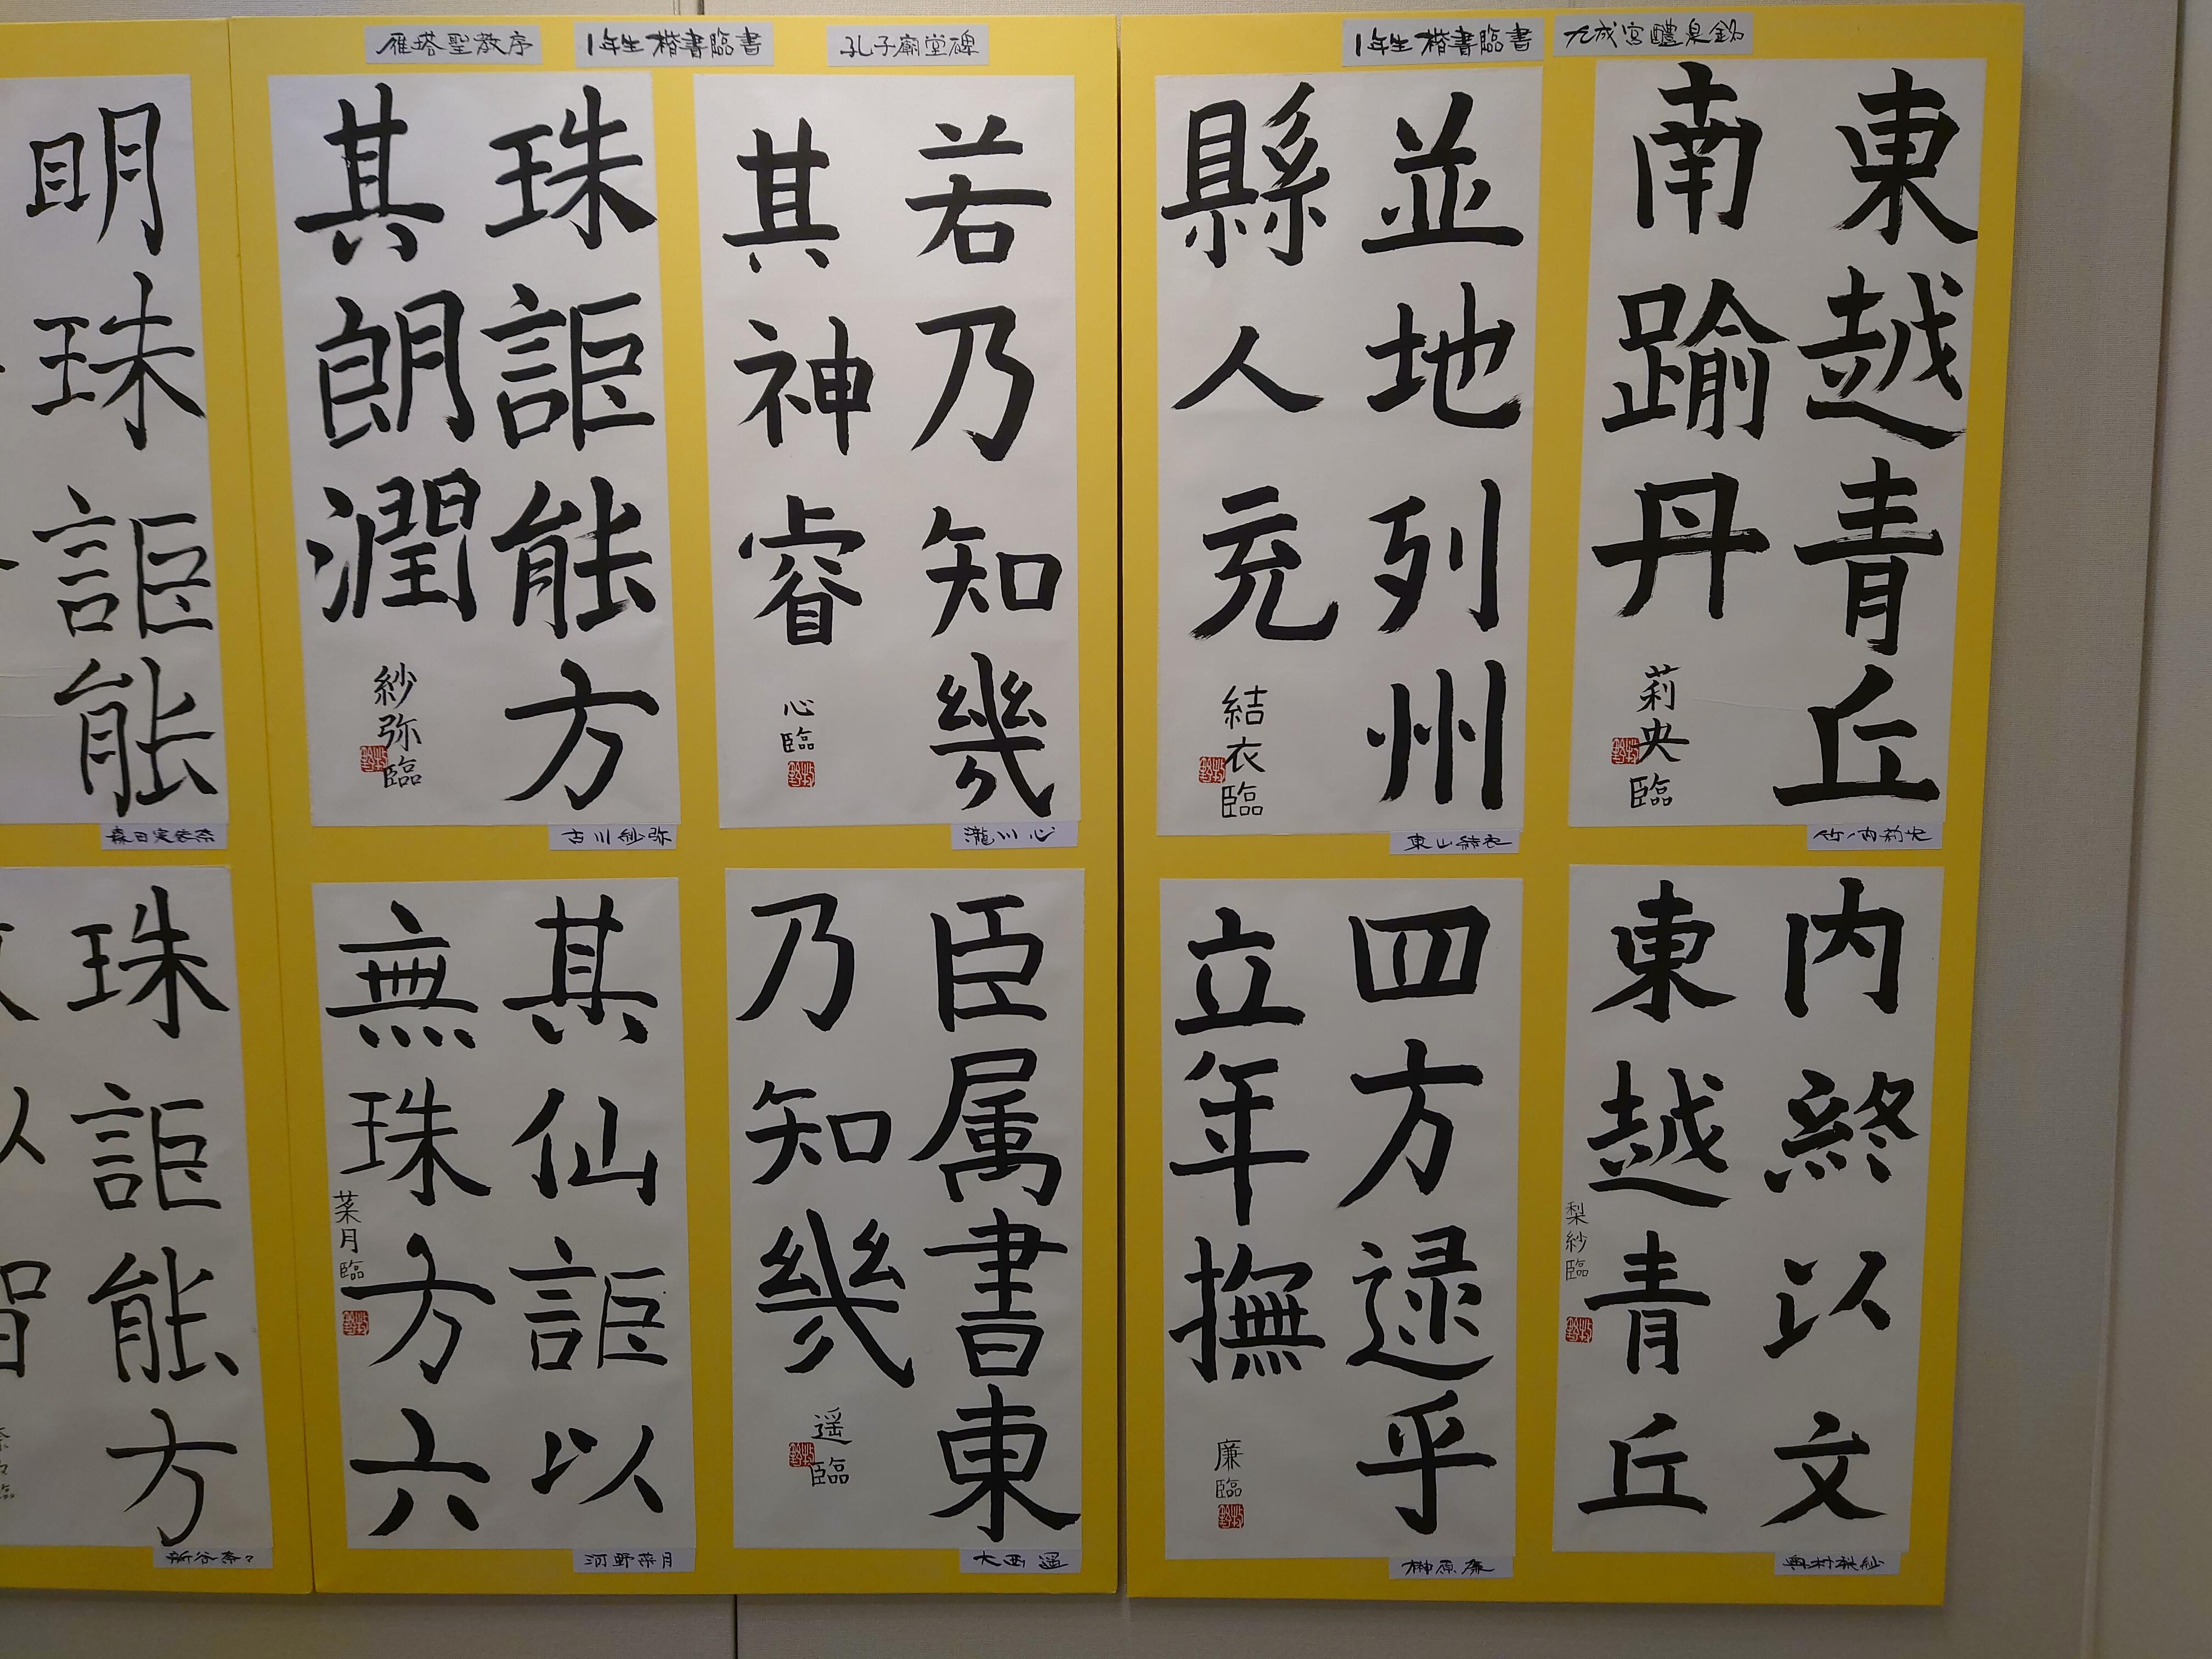 1年生 楷書臨書 九成宮醴泉銘
東越青丘
南踰丹
莉央臨
竹ノ内莉央
並地列州
縣人充
結衣臨
東山結衣
内終以文
東越青丘
梨紗臨
奥村梨紗
四方逯乎
立年撫
廉臨
榊原廉
雁塔聖教序 1年生 楷書臨書 孔子廟堂碑
若乃知幾
其神睿
心臨
瀧川心
珠詎能方
其朗潤
紗弥臨
古川紗弥
臣属書東
乃知幾
遥臨
大西遥
其仙詎以
無珠方六
菜月臨
河野菜月
明珠詎能
森田実依奈
珠詎能方
新谷奈々